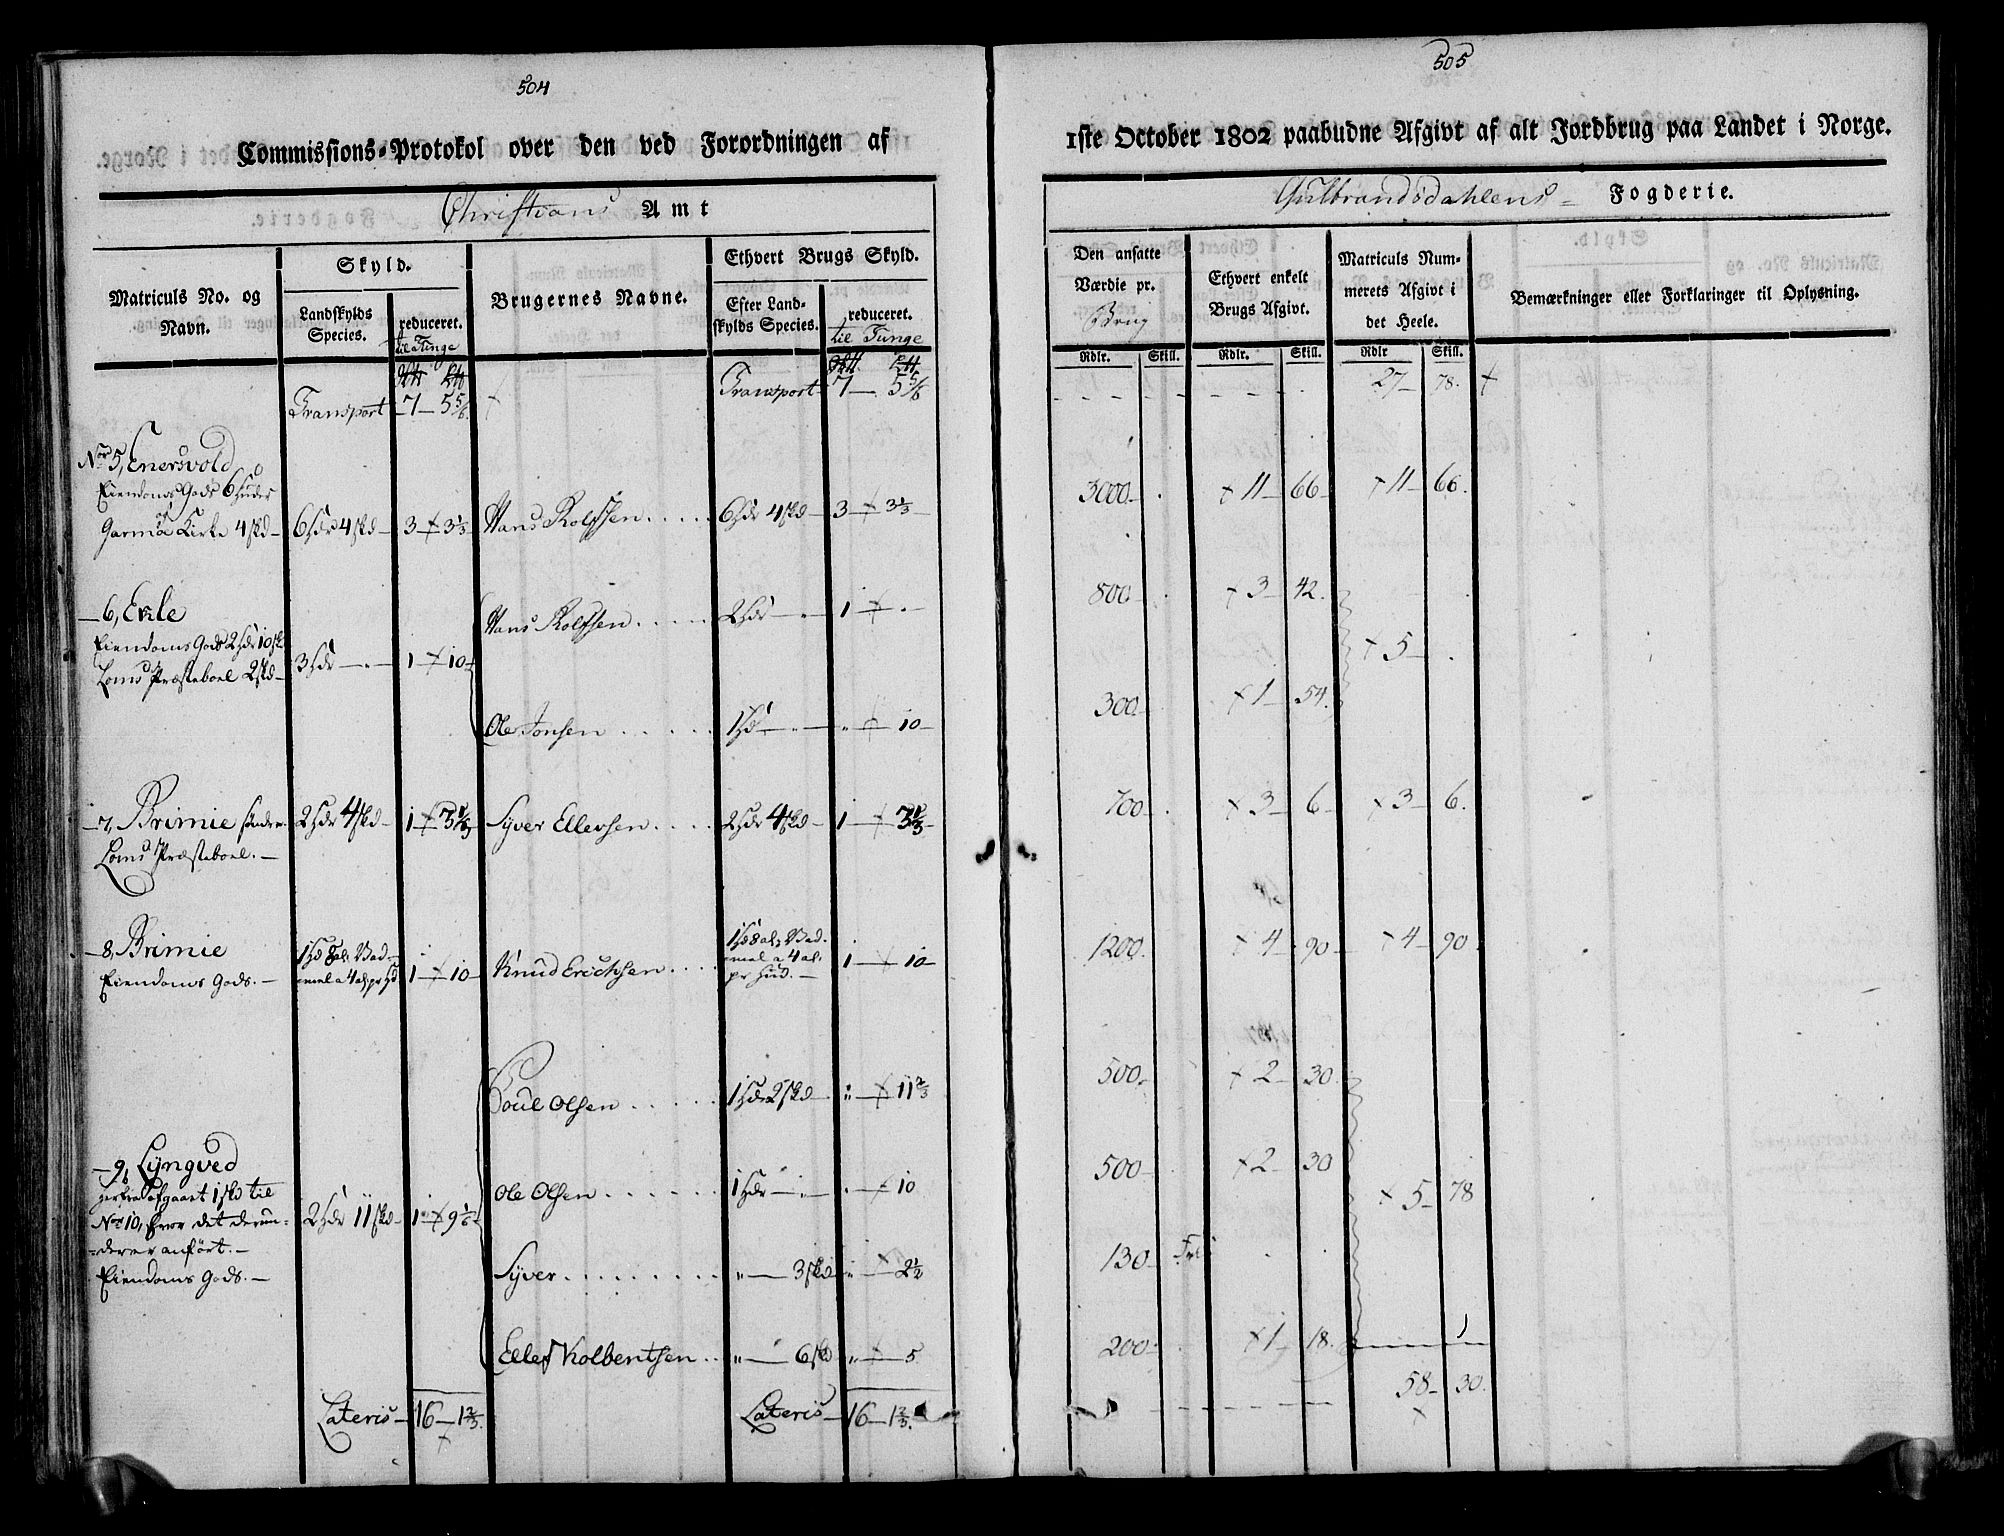 504
Commissions-Protokol over den ved Forordningen af
Christians Amt
Matriculs No. og Navn.
Skyld.
Landskylds Species.
reduceret.
til Tunge
Brugernes Navne.
Ethvert Brugs Skyld.
Efter Landskylds Species.
reduceret.
til Tunge
Transport 7 - 5 5/6 Transport 7 - 5 5/6
No 5, Enersvold
Eiendoms Gods 6 Huder
Garmo Kirke 4 skd - 6 Hdr 4 skd - 3 - 3 1/3 Hans Rolfsen 6 Hdr 4 skd - 3 - 3 1/3
6, Ekle Hans Rolfsen 2 Hdr - 1 -
Eiendoms Gods 2 Hdr 10 skd
Loms Præsteboel 2 skd - 3 Hdr - 1 - 10
Ole Jonsen 1 Hd - " - 10
7, Brimie søndre 2 Hdr 4 skd - 1 - 3 1/3 Syver Ellevsen 2 Hdr 4 skd - 1 - 3 1/3
Loms Præsteboel. -
8, Brimie 1 Hd 8 al. Vad- 1 - 10 Knud Erichsen 1 Hd 8 al. Vad- 1 - 10
Eiendoms Gods. - mel a 4 al. pr Hd mel a 4 al. pr Hud. -
Poul Olsen 1 Hdr 2 skd - " - 11 2/3
9, Lyngved
herfra afgaaet 1 skd til Ole Olsen 1 Hdr - 10
No 10, hvor det derun- 2 Hdr 11 skd - 1 - 9 1/6
der er anført. -
Eiendoms Gods. - Syver " - 3 skd " - 2 1/2
Ellef Kolbentsen " - 6 skd " - 5
Lateris - 16 - 1 2/3 Lateris - 16 - 1 2/3.
505
1ste October 1802 paabudne Afgivt af alt Jordbrug paa Landet i Norge.
Gulbrandsdahlens Fogderie.
Den ansatte Værdie pr.
Brug
Ethvert enkelt Brugs Afgivt.
Matriculs Nummerets Afgivt i det Heele.
Bemærkninger ellet Forklaringer til Oplysning.
Rdlr. Skill. Rdlr. Skill. Rdlr Skill.
27 - 78.
3000 - 11 - 66 - 11 - 66.
800 - 3 - 42.
5 -
300 - 1 - 54.
700 - 3 - 6 - 3 - 6.
1200. 4 - 90 - 4 - 90
500 - 2 - 30
500 - 2 - 30
5 - 78
130 - Frie
200 - 1 - 18.
58 - 30.